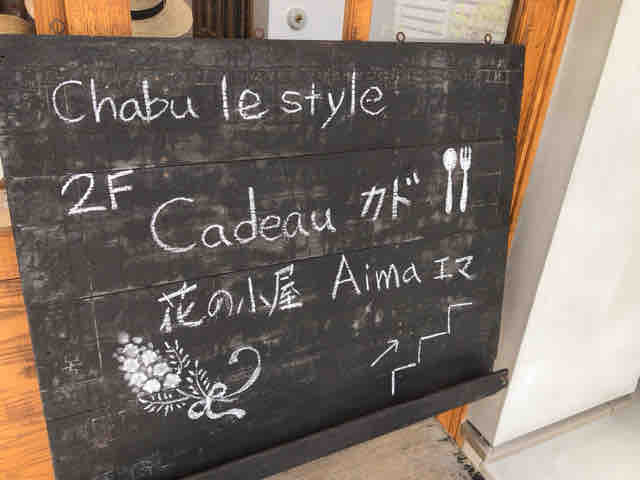 Chabu le style
2F
Cadeau カド
花の小屋 Aima エマ